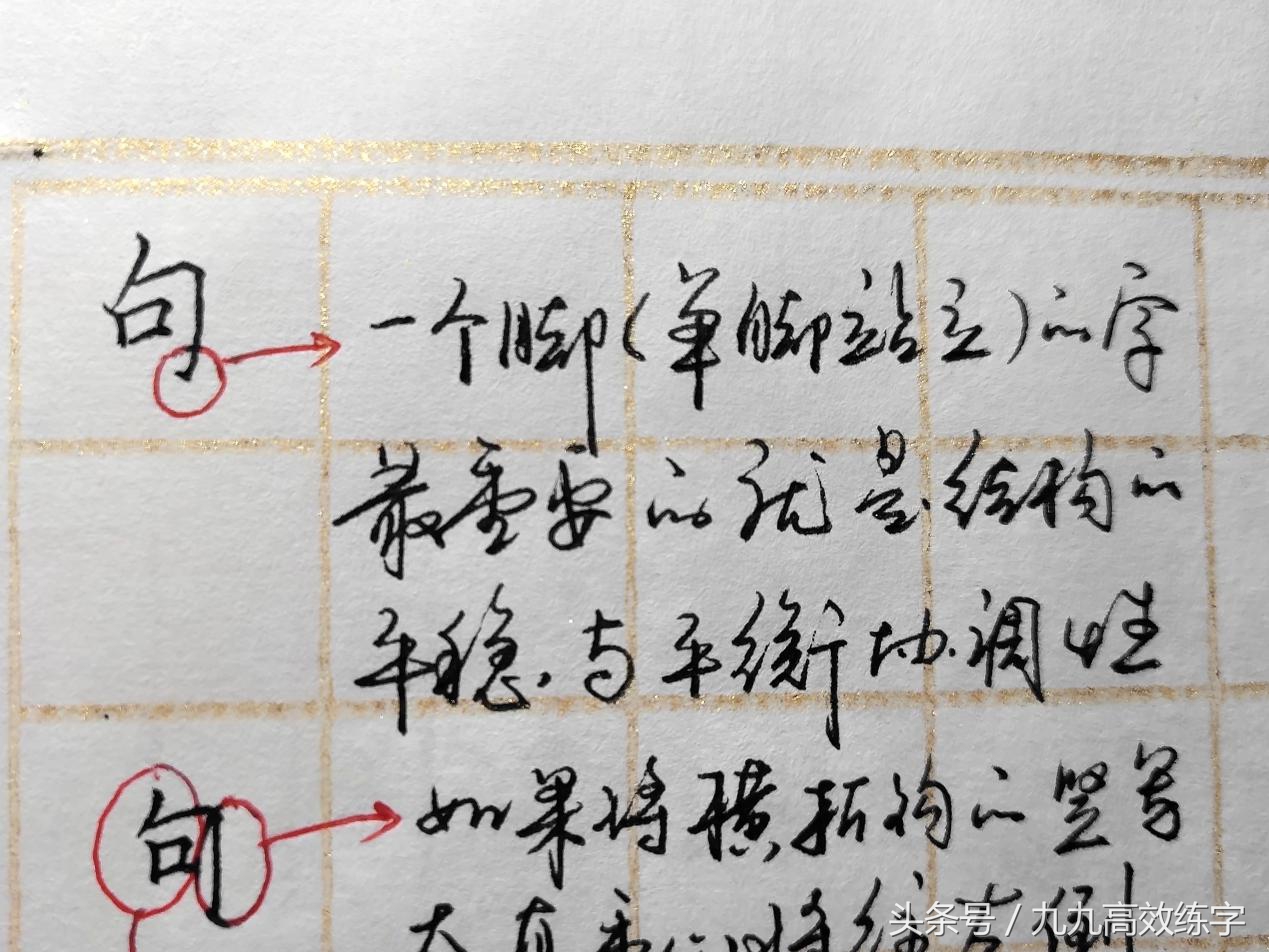 句 一个脚(单脚站立)的字
最重要的就是结构的
平稳与平衡协调性
句 如果将横折钩的竖写
太直
头条号 / 九九高效练字